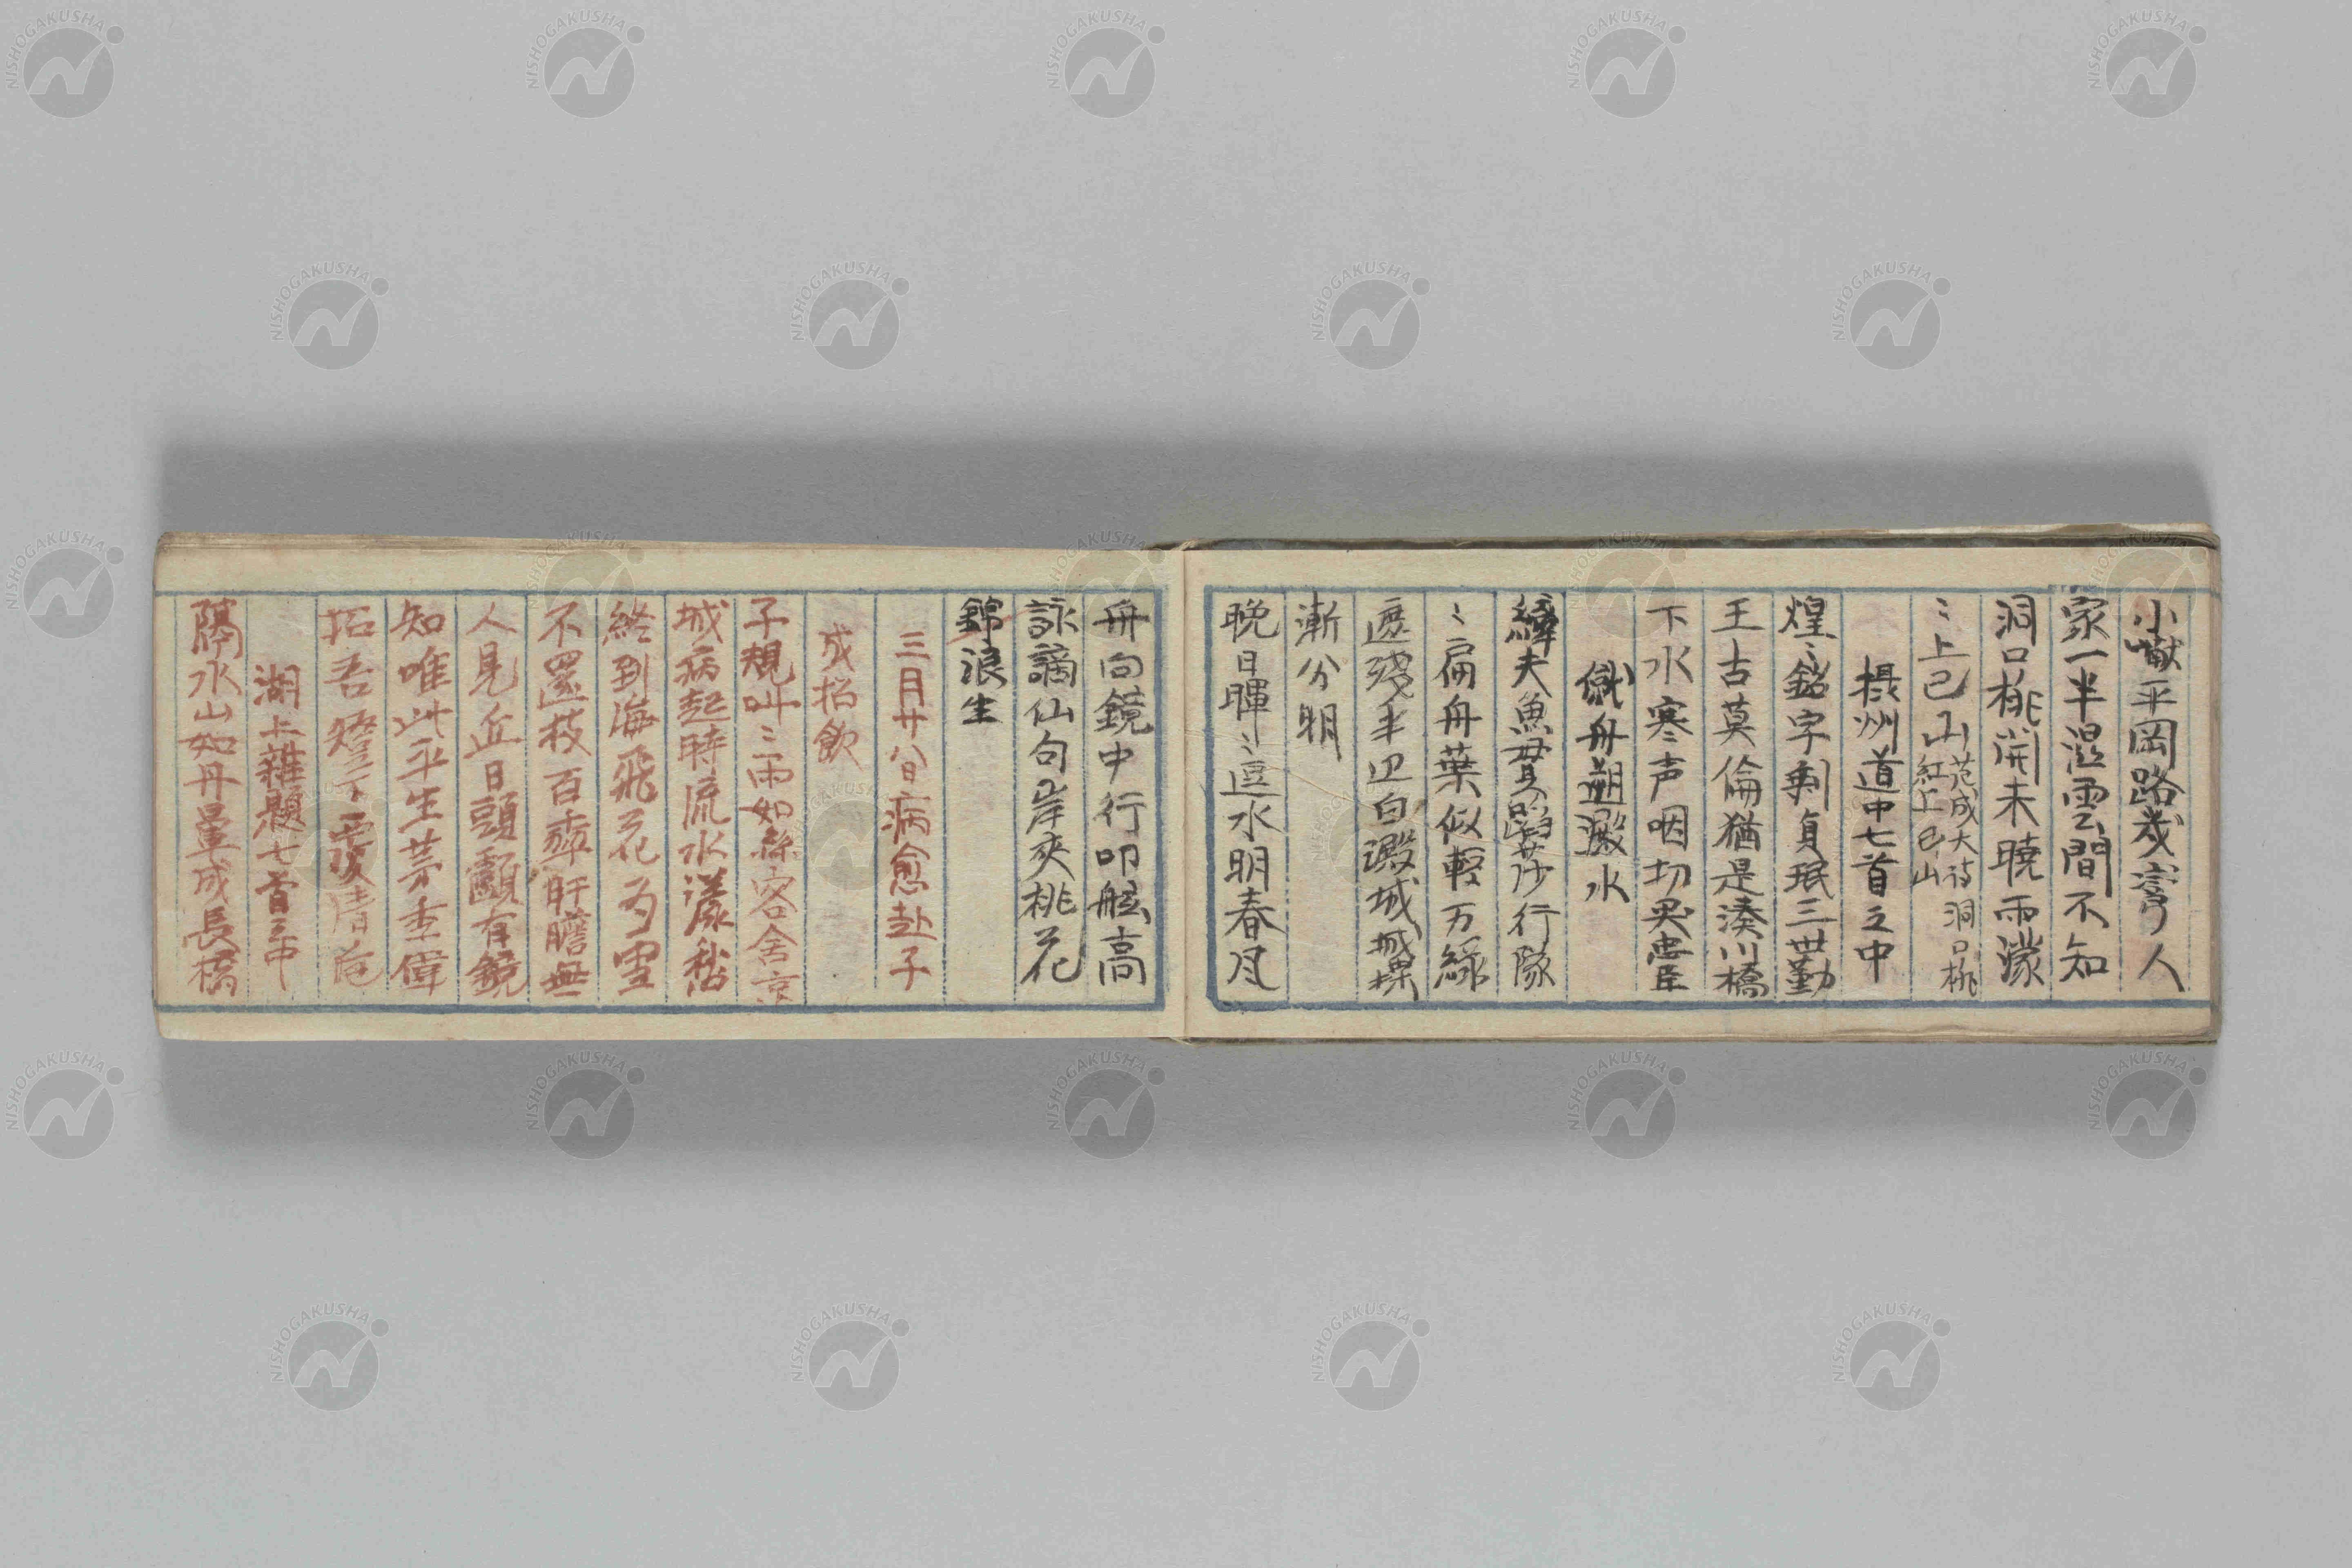 小巘平岡路幾彎人
家一半湿雲間不知
洞口桃開未暁雨濛
〻上巳山 范成大詩洞口桃
紅上巳山
摂州道中七首之中
煌〻銘字剩貞珉三世勤
王古莫倫猶是湊川橋
下水寒声咽切哭忠臣
儎舟遡澱水
縴夫魚貫蹈莎行隊
〻扁舟葉似軽万緑
遮残半辺白澱城城堞
漸分明
晩日暉〻逗水明春風
舟向鏡中行叩舷高
詠謫仙句岸夾桃花
錦浪生
三月廿八日病愈赴子
成招飲
子規叫〻雨如絲客舎京
城病起時流水漾愁
終到海飛花為雪
不還枝百莎肝膽無
人見丘日頭顱有鏡
知唯此平生芥季偉
拓吾燈下覆清卮
湖上雑題七首之中
隔水山如丹暈成長橋